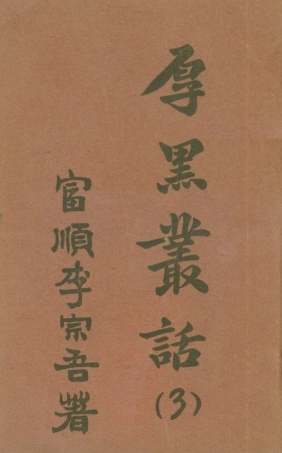 厚黑叢話
(3)
富順李宗吾著